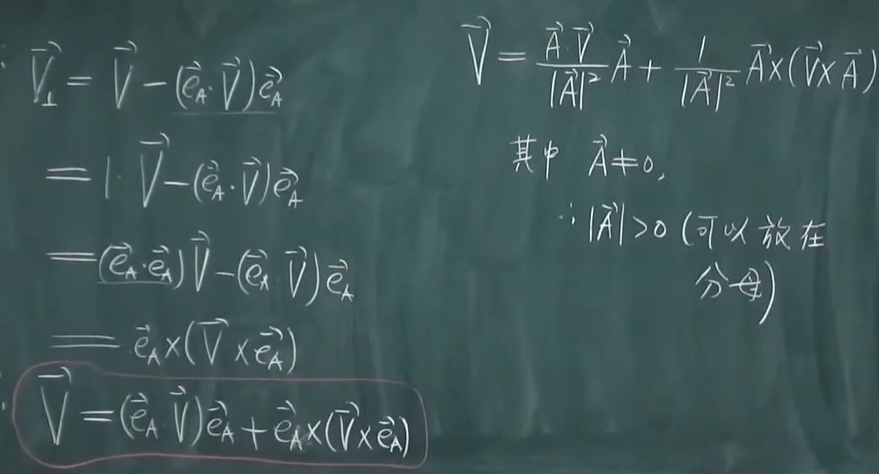 ∴ \vec{V}_⊥ = \vec{V} − (\vec{e}_A·\vec{V})\vec{e}_A
= 1·\vec{V} − (\vec{e}_A·\vec{V})\vec{e}_A
= (\vec{e}_A·\vec{e}_A)\vec{V} − (\vec{e}_A·\vec{V})\vec{e}_A
= \vec{e}_A×(\vec{V}×\vec{e}_A)
∴ \vec{V} = (\vec{e}_A·\vec{V})\vec{e}_A + \vec{e}_A×(\vec{V}×\vec{e}_A)
\vec{V} = \frac{\vec{A}·\vec{V}}{|\vec{A}|^2}\vec{A} + \frac{1}{|\vec{A}|^2}\vec{A}×(\vec{V}×\vec{A})
其中 \vec{A}≠0,
∴ |\vec{A}|>0 (可以放在
分母)